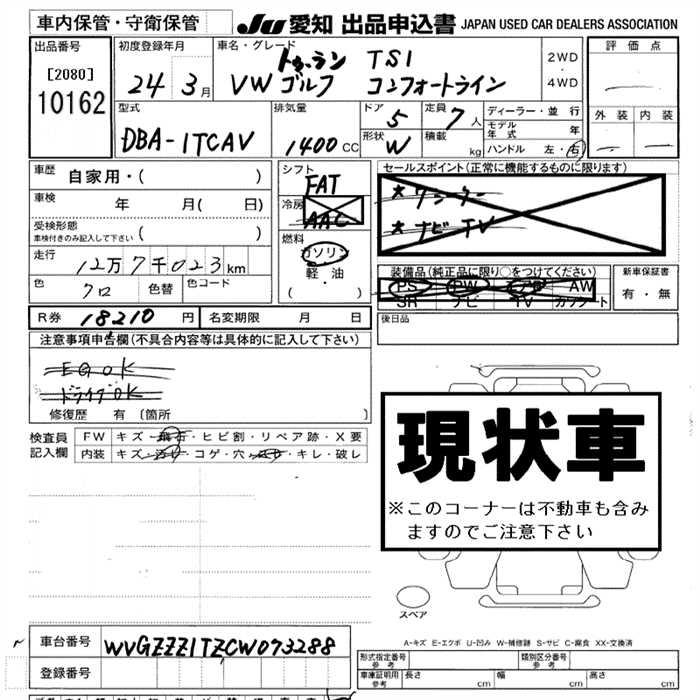 車内保管・守衛保管
JU 愛知 出品申込書 JAPAN USED CAR DEALERS ASSOCIATION
出品番号
[2080]
10162
初度登録年月
24 3月
車名・グレード
トゥーラン TSI
VW ゴルフ コンフォートライン
2WD
・
4WD
評価点
外装 内装
型式
DBA-1TCAV
排気量
1400CC
ドア 5
形状 W
定員 7人
積載 kg
ディーラー・並行
モデル年式 年
ハンドル 左・右
車歴 自家用・( )
車検 年 月( 日)
受検形態
車検付きのみ記入して下さい ( )
走行 12万7千023km
色 クロ 色替 色コード
シフト FAT
冷房 AAC
燃料
ガソリン
軽・油
( ・ )
セールスポイント(正常に機能するものに限ります)
*ワンオーナー
*ナビTV
装備品(純正品に限り○をつけてください)
PS PW エアB AW
SR ナビ TV カワシート
新車保証書
有・無
R券 18210円 名変期限 月 日
後日品
注意事項申告欄(不具合内容等は具体的に記入して下さい)
EGOK
ドライブOK
修復歴 有〔箇所 〕
検査員記入欄
FW キズ・飛石・ヒビ割・リペア跡・X要
内装 キズ・汚レ・コゲ・穴・・キレ・破レ
現状車
※このコーナーは不動車も含み
ますのでご注意下さい
スペア
A-キズ E-エクボ U-凹み W-補修跡 S-サビ C-腐食 XX-交換済
車台番号 WVGZZZ1TZCW073288
登録番号
形式指定番号 参考
類別区分番号 参考
車庫証明用 参考 長さ cm 幅 cm 高さ cm